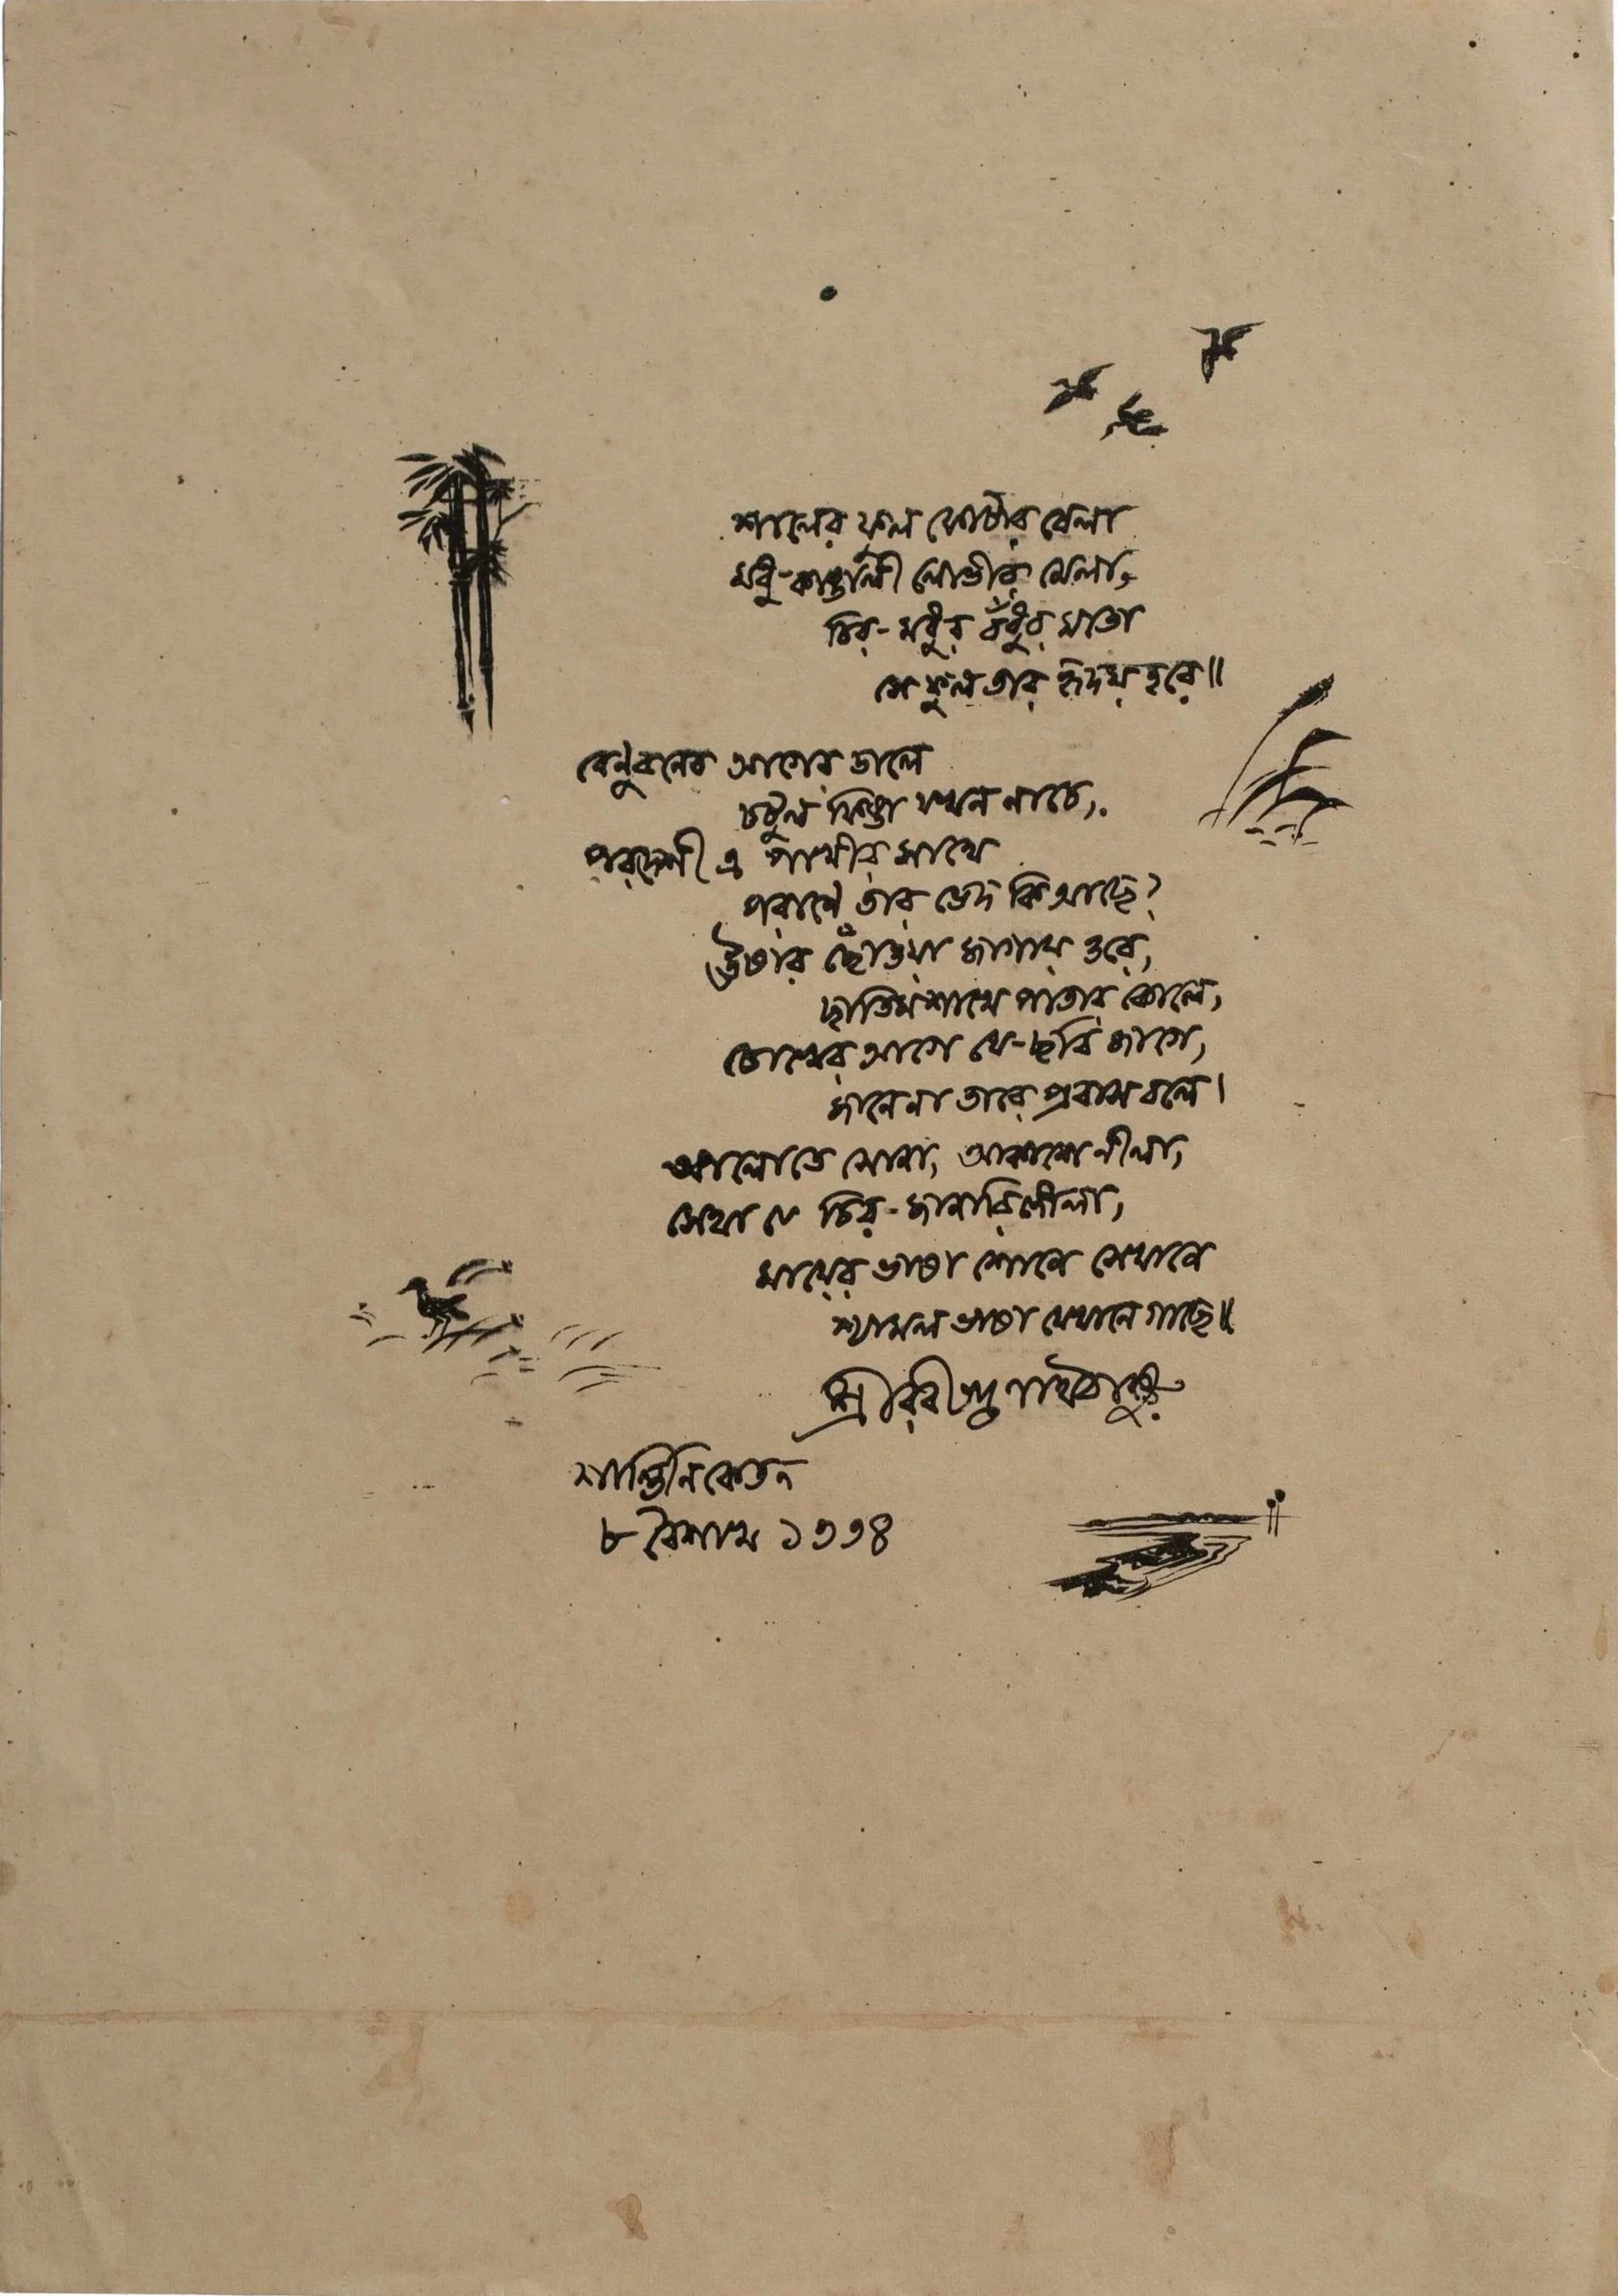 শালের ফুল ফোটার বেলা
মধু-কাঙালী লোভীর মেলা,
চির-মধুর বঁধুর মতো
সে ফুল তার হৃদয় হরে॥
বেনুবনের আগের ডালে
চটুল ফিঙা যখন নাচে,
পরদেশী এ পাখীর সাথে
পরানে তার ভেদ কি আছে?
উষার ছোঁওয়া জাগায় ওরে,
ছাতিমশাখে পাতার কোলে,
চোখের আগে যে-ছবি জাগে,
মানেনা তারে প্রবাস বলে।
আলোতে সোনা, আকাশে নীলা,
সেথা যে চির-জানারি লীলা,
মায়ের ভাষা শোনে সেখানে
শ্যামল ভাষা যেখানে গাছে॥
শ্রীরবীন্দ্রনাথ ঠাকুর
শান্তিনিকেতন
৮ বৈশাখ ১৩৩৪